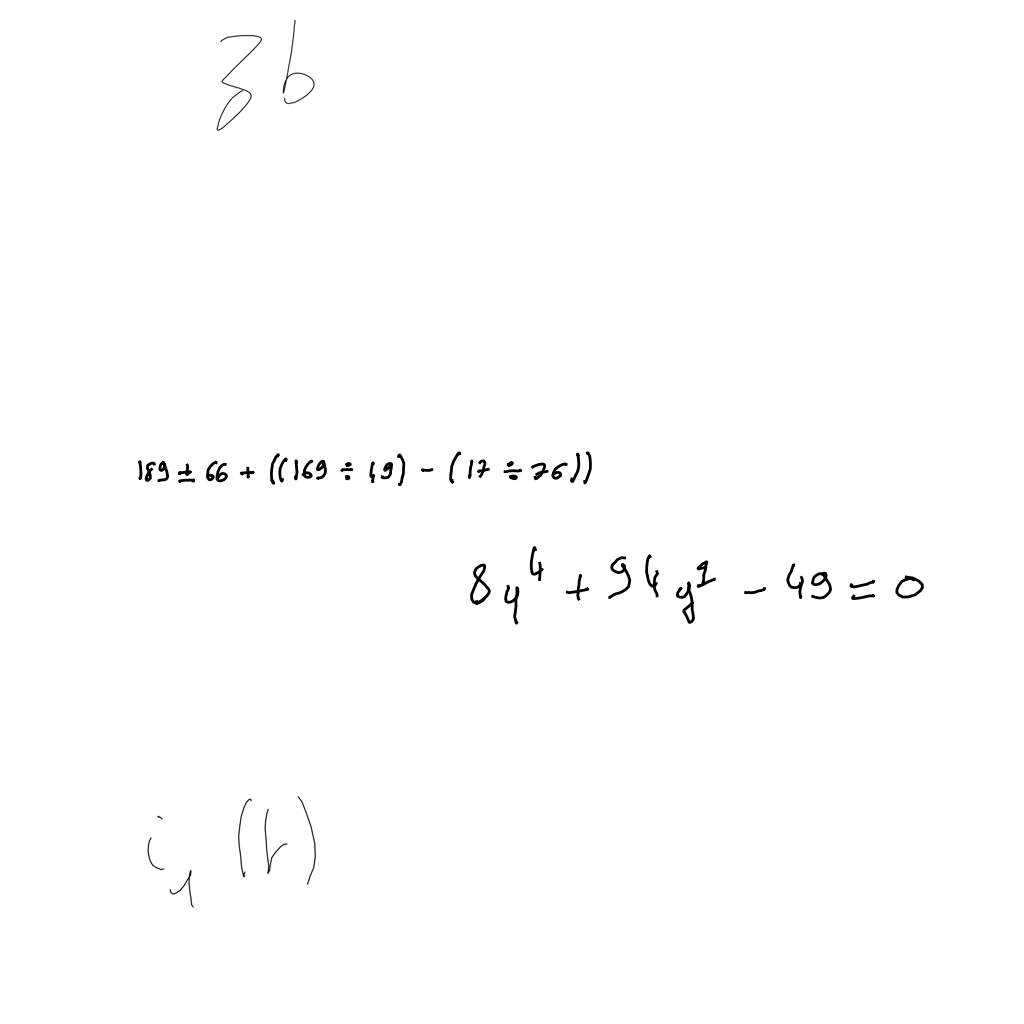 3b
189 ± 66 + ((169 ÷ 49) - (17 ÷ 76))
8y⁴ + 94y¹ - 49 = 0
i₁ (t)